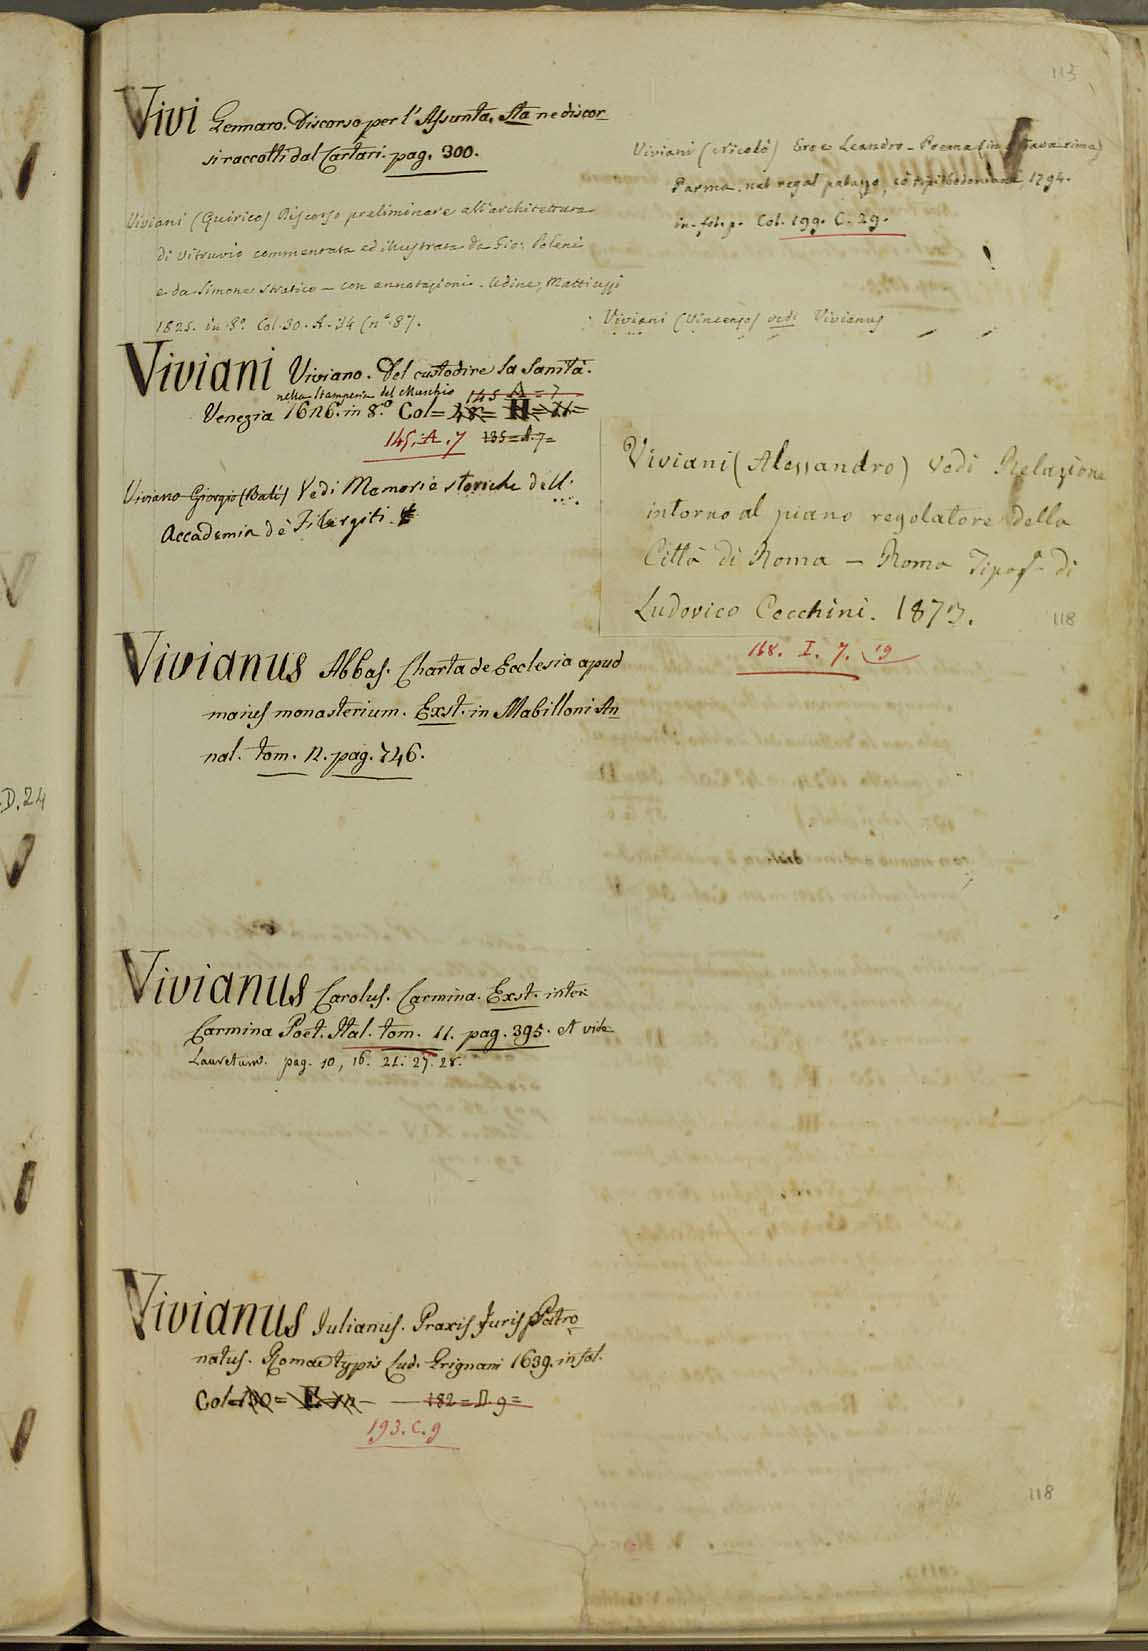 113
Vivi Gennaro. Discorso per l'Assunta. Sta ne discor
si raccolti dal Cartari. pag. 300.
Viviani (Quirico) Discorso preliminare all'architettura
di Vitruvio commentata ed illustrata da Gio: Poleni
e da Simone Stratico — con annotazioni. Udine, Mattiuzzi
1825. in 8º. Col. 30. A. 74 (nº. 8).
Viviani Viviano. Del custodire la Sanità.
nella Stamperia del Muschio 145 A = 7
Venezia 1626. in 8.º Col = 48 = H = 21 =
145. A. 7 135 = A. 7 =
Viviano Giorgio (Balì) Vedi Memorie storiche dell'
Accademia de' Filergiti.
Vivianus Abbas. Charta de Ecclesia apud
maius monasterium. Exst. in Mabilloni An
nal. tom. 12. pag. 746.
Vivianus Carolus. Carmina. Exst. inter
Carmina Poet. Ital. tom. 11. pag. 395. et vide
Lauretum. pag. 10, 16. 21. 27. 28.
Vivianus Iulianus. Praxis Juris Patro
natus. Romae typis Lud. Grignani 1639. in fol.
Col = 130 = E. — 182 = D. 9 =
193. C. 9
Viviani (Nicolò) Ero e Leandro – Poema (in ottava rima)
Parma, nel regal palazzo, co' tipi Bodoniani, 1794.
in-fol. p. Col. 199. C. 29.
Viviani (Vincenzo) vedi Vivianus
Viviani (Alessandro) Vedi Relazione
intorno al piano regolatore della
Città di Roma — Roma Tipog. di
Ludovico Cecchini. 1873.
118
168. I. 7. 19
118
D. 24